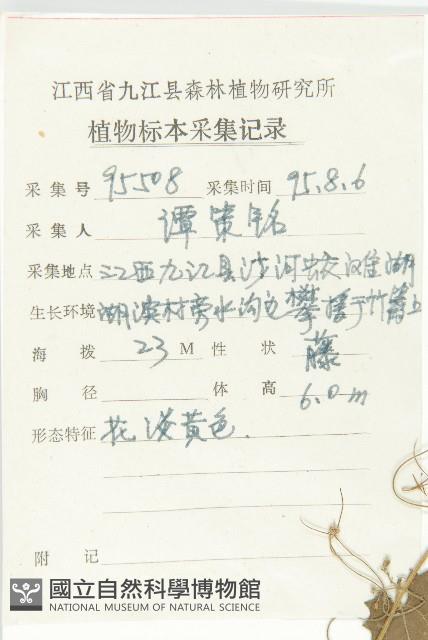 江西省九江县森林植物研究所
植物标本采集记录
采集号 95508 采集时间 95.8.6
采集人 谭策铭
采集地点 江西九江县沙河蛟滩湖
生长环境 湖滨村旁水沟边攀援于竹篱上
海拨 23 M 性状 藤
胸径 体高 6.0m
形态特征 花淡黄色.
附记
國立自然科學博物館
NATIONAL MUSEUM OF NATURAL SCIENCE